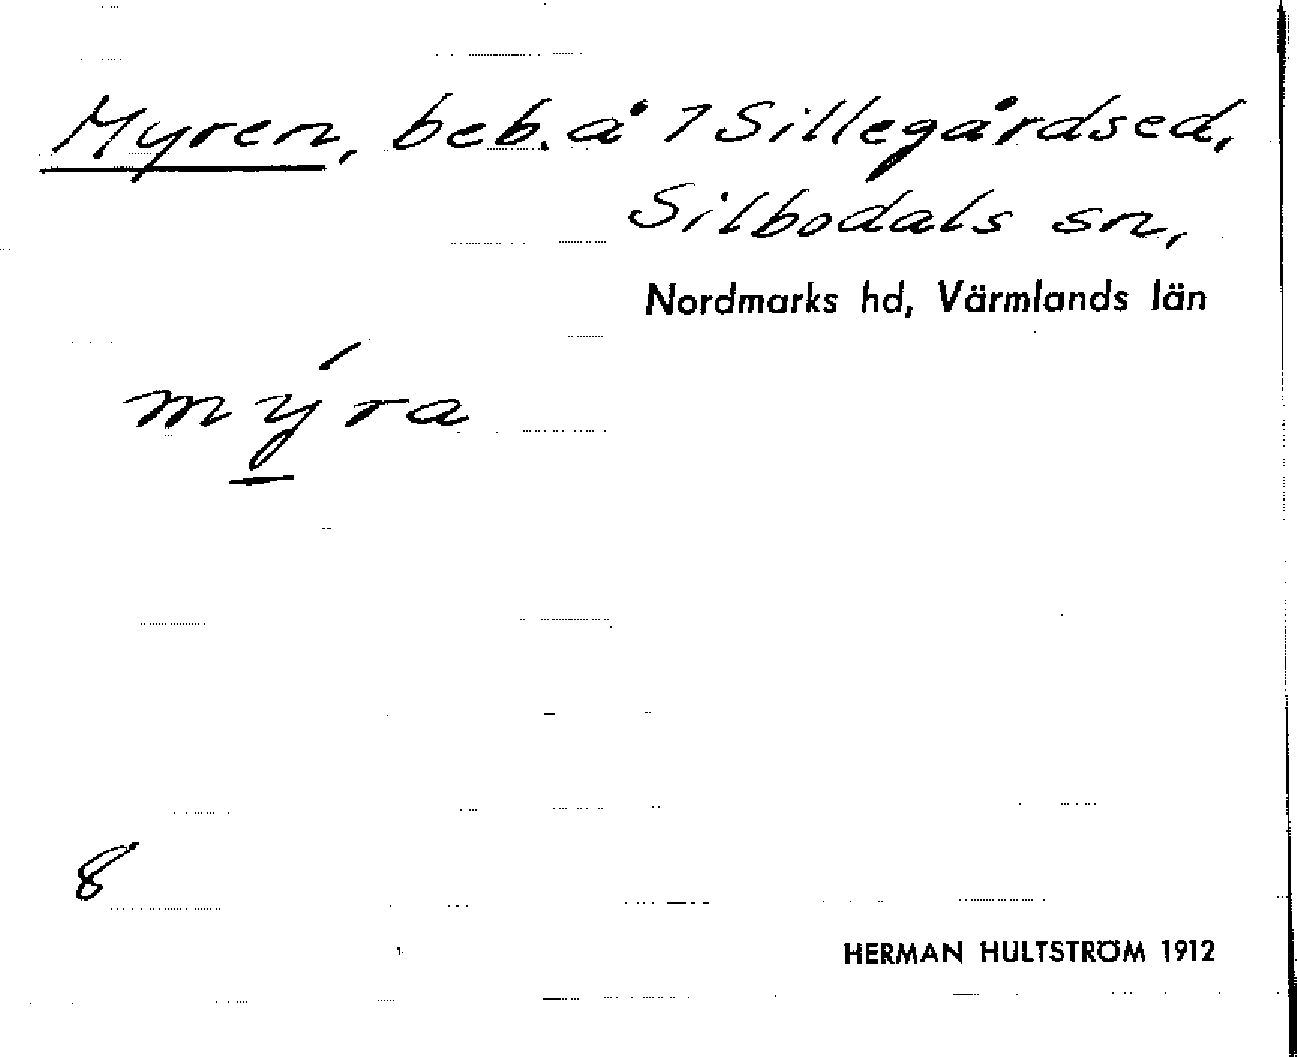 Myren, beb. å 1 Sillegårdsed,
Silbodals sn,
Nordmarks hd, Värmlands län
mýra
8
HERMAN HULTSTRÖM 1912